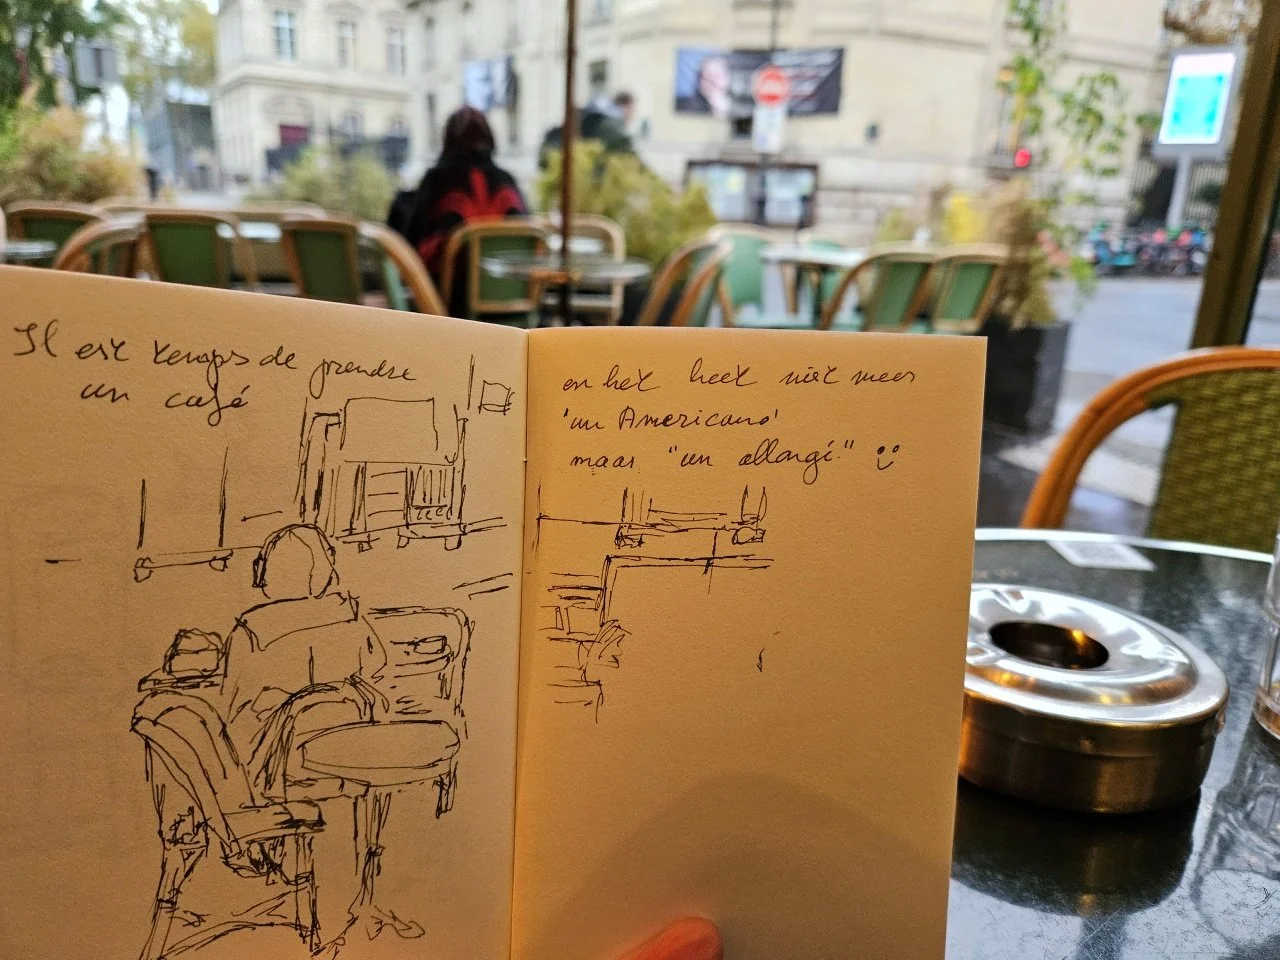 Il est temps de prendre
un café
en het heet niet meer
'un Americano'
maar "un allongé" :)